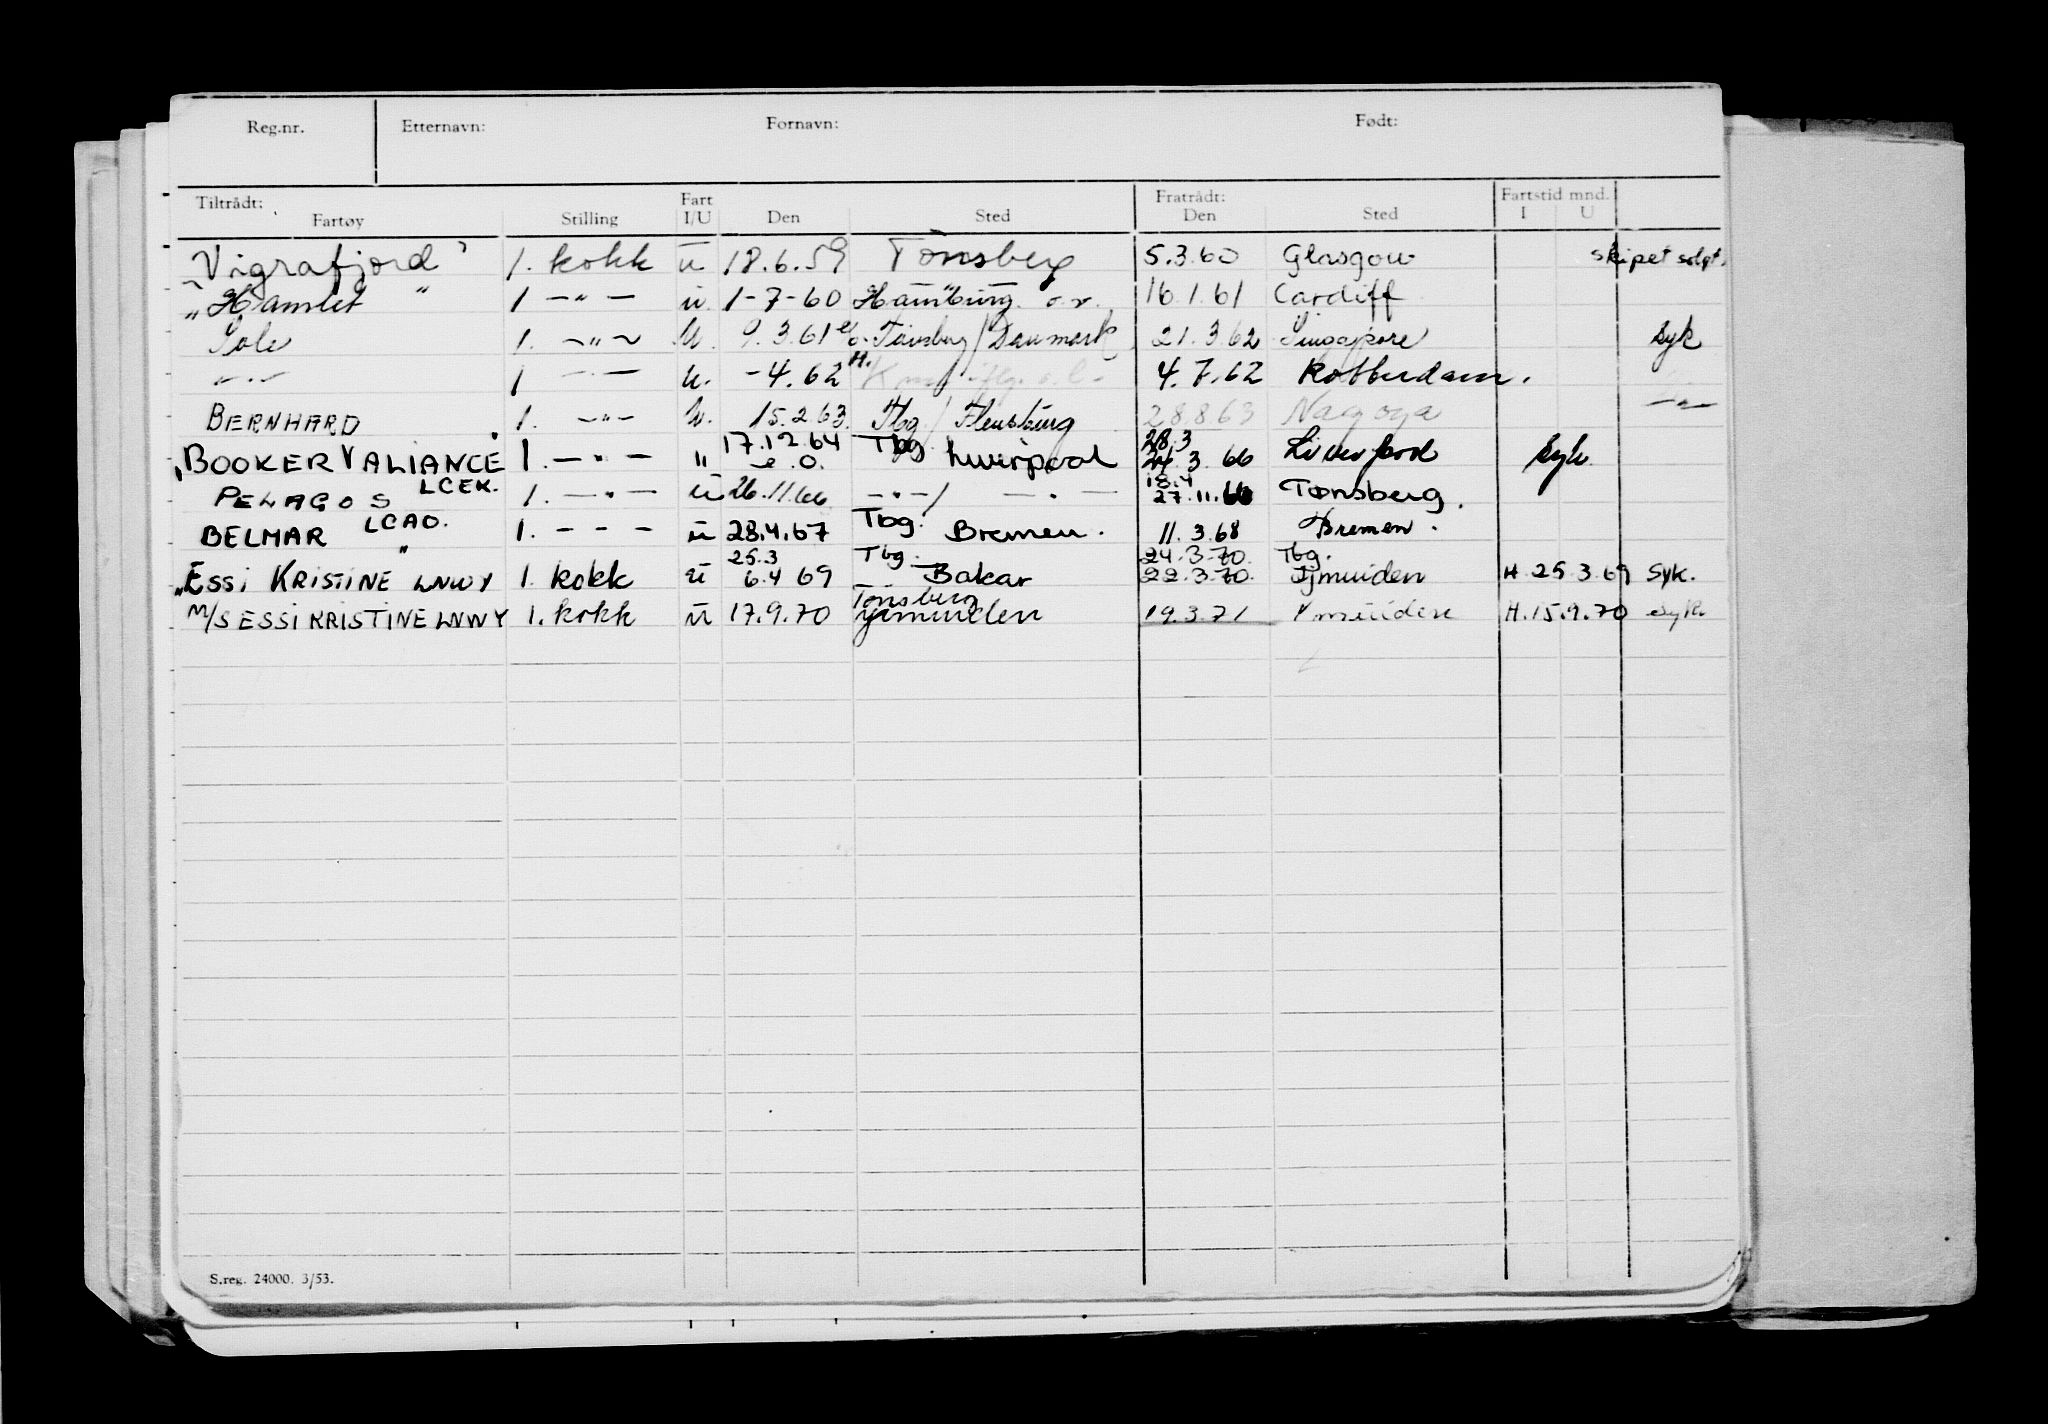 Reg.nr. Etternavn: Fornavn: Født:
Tiltrådt: Fratrådt: Fartstid mnd.
Fartøy Stilling Fart I/U Den Sted Den Sted I U
"Vigrafjord" 1. kokk u 18.6.59 Tønsberg 5.3.60 Glasgow skipet solgt.
"Hamlet" 1 -"- u. 1-7-60 Hamburg o.r. 16.1.61 Cardiff
1. -"- u. 9.3.61 Tønsberg / Danmark 21.3.62 Singapore syk
-"- 1 -"- u. -4.62 4.7.62 Rotterdam.
BERNHARD 1. -"- u. 15.2.63. Tbg / Flensburg 28.8.63 Nagoya -"-
17.12.64 Tbg 28.3
"BOOKER VALIANCE" 1. -"- u Liverpool 24.3.66 Liverpool syk
LCEK. 18.4
PELAGOS 1. -"- u 26.11.66 -"- / -"- 27.11.66 Tønsberg.
LCAO. Tbg.
BELMAR 1. - - - u 28.4.67 Bremen. 11.3.68 Bremen.
25.3 Tbg. 24.3.70. Tbg.
"ESSI KRISTINE" LNWY 1. kokk u 6.4 69 Bakar 22.3.70. Ijmuiden H. 25.3.69 syk.
Tønsberg
M/S ESSI KRISTINE LNWY 1. kokk u 17.9.70 Ijmuiden 19.3.71 Ymuiden H. 15.9.70 syk.
S.reg. 24000. 3/53.